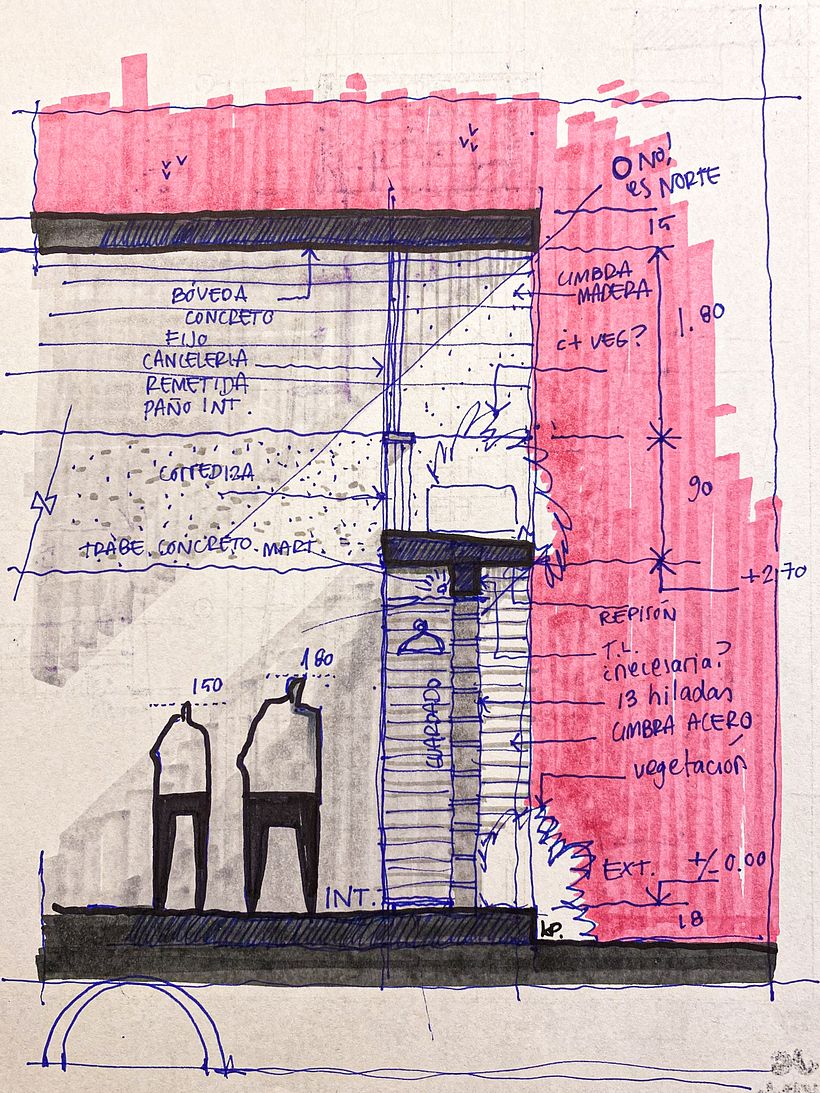 O NO!
es NORTE
15
BÓVEDA
CONCRETO
FIJO
CANCELERIA
REMETIDA
PAÑO INT.
CIMBRA
MADERA
1.80
¿+ VEG?
CORREDIZA
90
TRABE CONCRETO MART.
+2.70
REPISÓN
T.L.
¿necesaria?
13 hiladas
CIMBRA ACERO
vegetación
150
180
GUARDADO
EXT. +/- 0.00
INT.
18